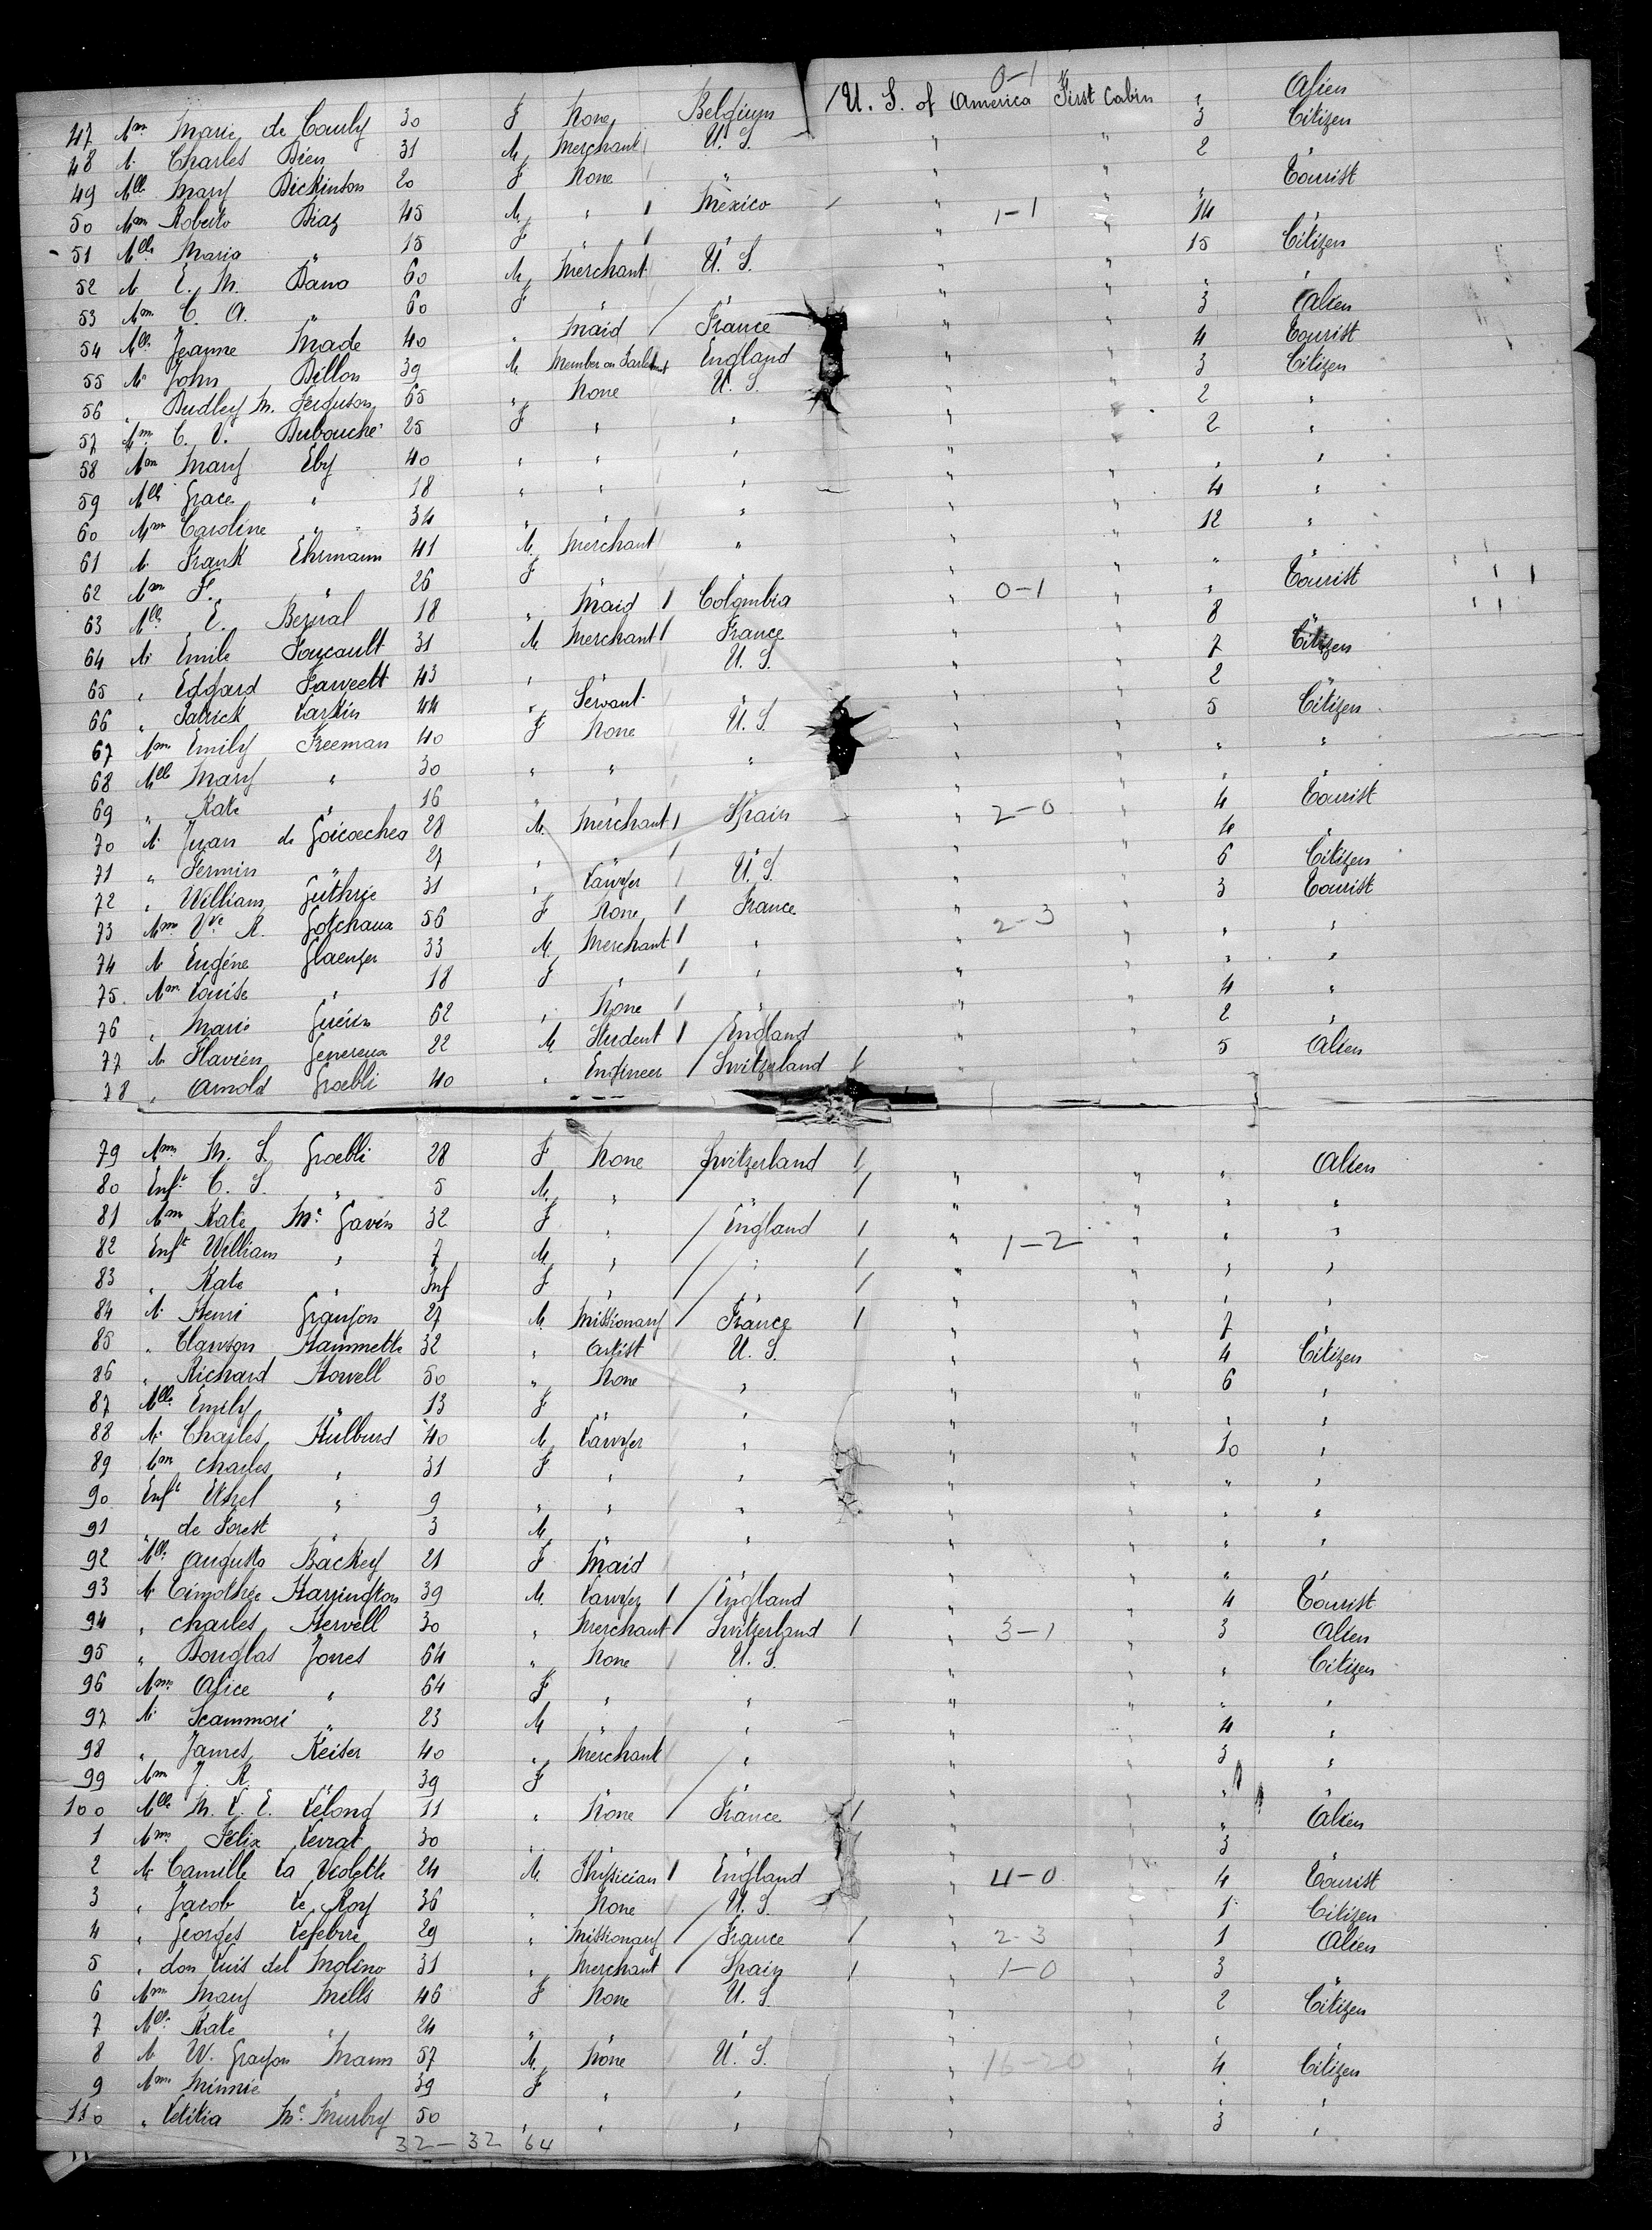 0-1
47 Mme Marie de Cauly 30 F None Belgium / U. S. of America First Cabin " Alien
48 M. Charles Dien 31 M. Merchant U. S. " " 3 Citizen
49 Mlle Mary Dickinson 20 F None " " " 2 "
50 Mme Roberto Diaz 45 M. " Mexico " " " Tourist
51 Mlle Maria " 15 F " " " 1-1 " 14 "
52 M. E. M. Dana 60 M. Merchant U. S. " " 15 Citizen
53 Mme C. A. " 60 F " " " " " "
54 Mlle Jeanne Made 40 " Maid France " " 3 Alien
55 M. John Dillon 39 M. Member on Parliament England " " 4 Tourist
56 " Dudley M. Ferguson 65 " None U. S. " " 3 Citizen
57 Mme C. V. Dubouché 25 F " " " " 2 "
58 Mme Mary Eby 40 " " " " " 2 "
59 Mlle Grace " 18 " " " " " " "
60 Mme Caroline " 34 " " " " " 4 "
61 M. Frank Ehrmann 41 M. Merchant " " " 12 "
62 Mme F. " 26 F " " " " " "
63 Mlle E. Bernal 18 " Maid Colombia " 0-1 " " Tourist
64 M. Emile Foucault 31 M. Merchant France " " 8 "
65 " Edgard Fawcett 43 " " U. S. " " 7 Citizen
66 " Patrick Larkin 44 " Servant " " " 2 "
67 Mme Emily Freeman 40 F None U. S. " " 5 Citizen
68 Mlle Mary " 30 " " " " " " "
69 " Kate " 16 " " " " " " "
70 M. Juan de Goicoechea 28 M. Merchant Spain " 2-0 " 4 Tourist
71 " Fermin " 27 " " " " " 4 "
72 " William Guthrie 31 " Lawyer U. S. " " 6 Citizen
73 Mme Vve R. Gotchaux 56 F None France " 2-3 " 3 Tourist
74 M. Eugéne Glaenzer 33 M. Merchant " " " " "
75 Mme Louise " 18 F " " " " " "
76 " Marie Guérin 62 " None " " " 4 "
77 M. Flavien Genereux 22 M. Student England " " 2 "
78 " Arnold Groebli 40 " Engineer Switzerland " " 5 Alien
79 Mme M. S. Groebli 28 F None Switzerland " " " Alien
80 Enft C. S. " 5 M. " " " " " "
81 Mme Kate Mc Gavin 32 F " England " " " "
82 Enft William " 7 M. " " " 1-2 " " "
83 " Kate " Inf F " " " " " "
84 M. Henri Granjon 27 M. Missionary France " " 7 "
85 " Clawson Hammette 32 " Artist U. S. " " 4 Citizen
86 " Richard Howell 50 " None " " " 6 "
87 Mlle Emily " 13 F " " " " " "
88 M. Charles Hulburd 40 M. Lawyer " " " 10 "
89 Mme Charles " 31 F " " " " " "
90 Enft Ethel " 9 " " " " " " "
91 " de Forest " 3 M. " " " " " "
92 Mlle Augusta Backey 21 F Maid " " " " "
93 M. Timothée Harrington 39 M. Lawyer England " " 4 Tourist
94 " Charles Hervell 30 " Merchant Switzerland " 3-1 " 3 Alien
95 " Douglas Jones 64 " None U. S. " " " Citizen
96 Mme Alice " 64 F " " " " " "
97 M. Scammon " 23 M " " " " 4 "
98 " James Keiser 40 " Merchant " " " 3 "
99 Mme J. R. " 39 F " " " " " "
100 Mlle M. L. E. Lelong 11 " None France " " " Alien
1 Mme Felix Levrat 30 " " " " " 3 "
2 M. Camille La Violette 24 M. Physician England " 4-0 " 4 Tourist
3 " Jacob Le Roy 36 " None U. S. " " 1 Citizen
4 " Georges Lefebvre 29 " Missionary France " 2-3 " 1 Alien
5 " don Luis del Molino 31 " Merchant Spain " 1-0 " 3 "
6 Mme Mary Mills 46 F None U. S. " " 2 Citizen
7 Mlle Kate " 24 " " " " " " "
8 M. W. Grayson Mann 57 M. None U. S. " 16-20 " 4 Citizen
9 Mme Minnie " 39 F " " " " " "
110 " Letitia Mc Murtry 50 " " " " " 3 "
32-32 64